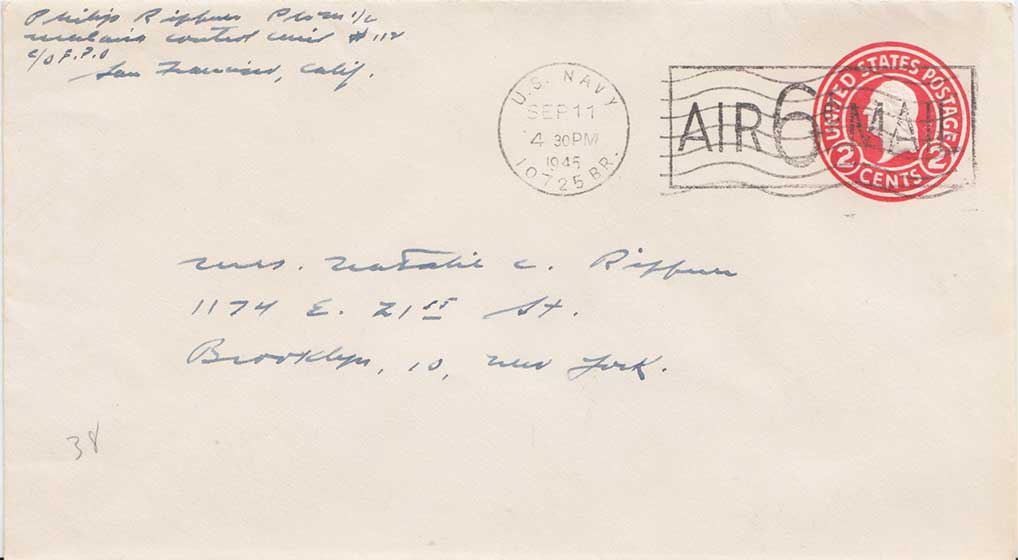 Philip Riffner PhoM 1/c
Malaria Control Unit #112
c/o F.P.O
San Francisco, Calif.
U.S. NAVY
SEP 11
4 30PM
1945
10725 BR.
AIR 6¢ MAIL
UNITED STATES POSTAGE
2 CENTS 2
Mrs. Natalie C. Riffner
1174 E. 21st St.
Brooklyn, 10, New York.
38